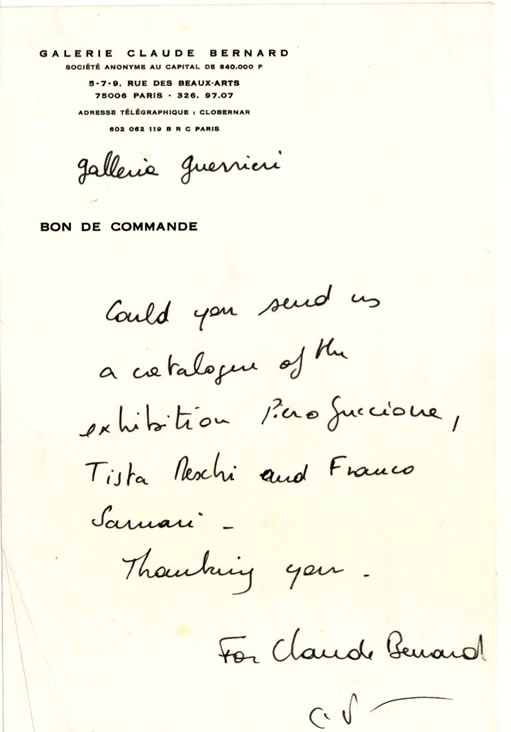 GALERIE CLAUDE BERNARD
SOCIÉTÉ ANONYME AU CAPITAL DE 640.000 F
5-7-9, RUE DES BEAUX-ARTS
75006 PARIS - 326. 97.07
ADRESSE TÉLÉGRAPHIQUE : CLOBERNAR
602 062 119 B R C PARIS
galleria guerrieri
BON DE COMMANDE
Could you send us
a catalogue of the
exhibition Piero Guccione,
Tista Meschi and Franco
Sarnari -
Thanking you.
For Claude Bernard